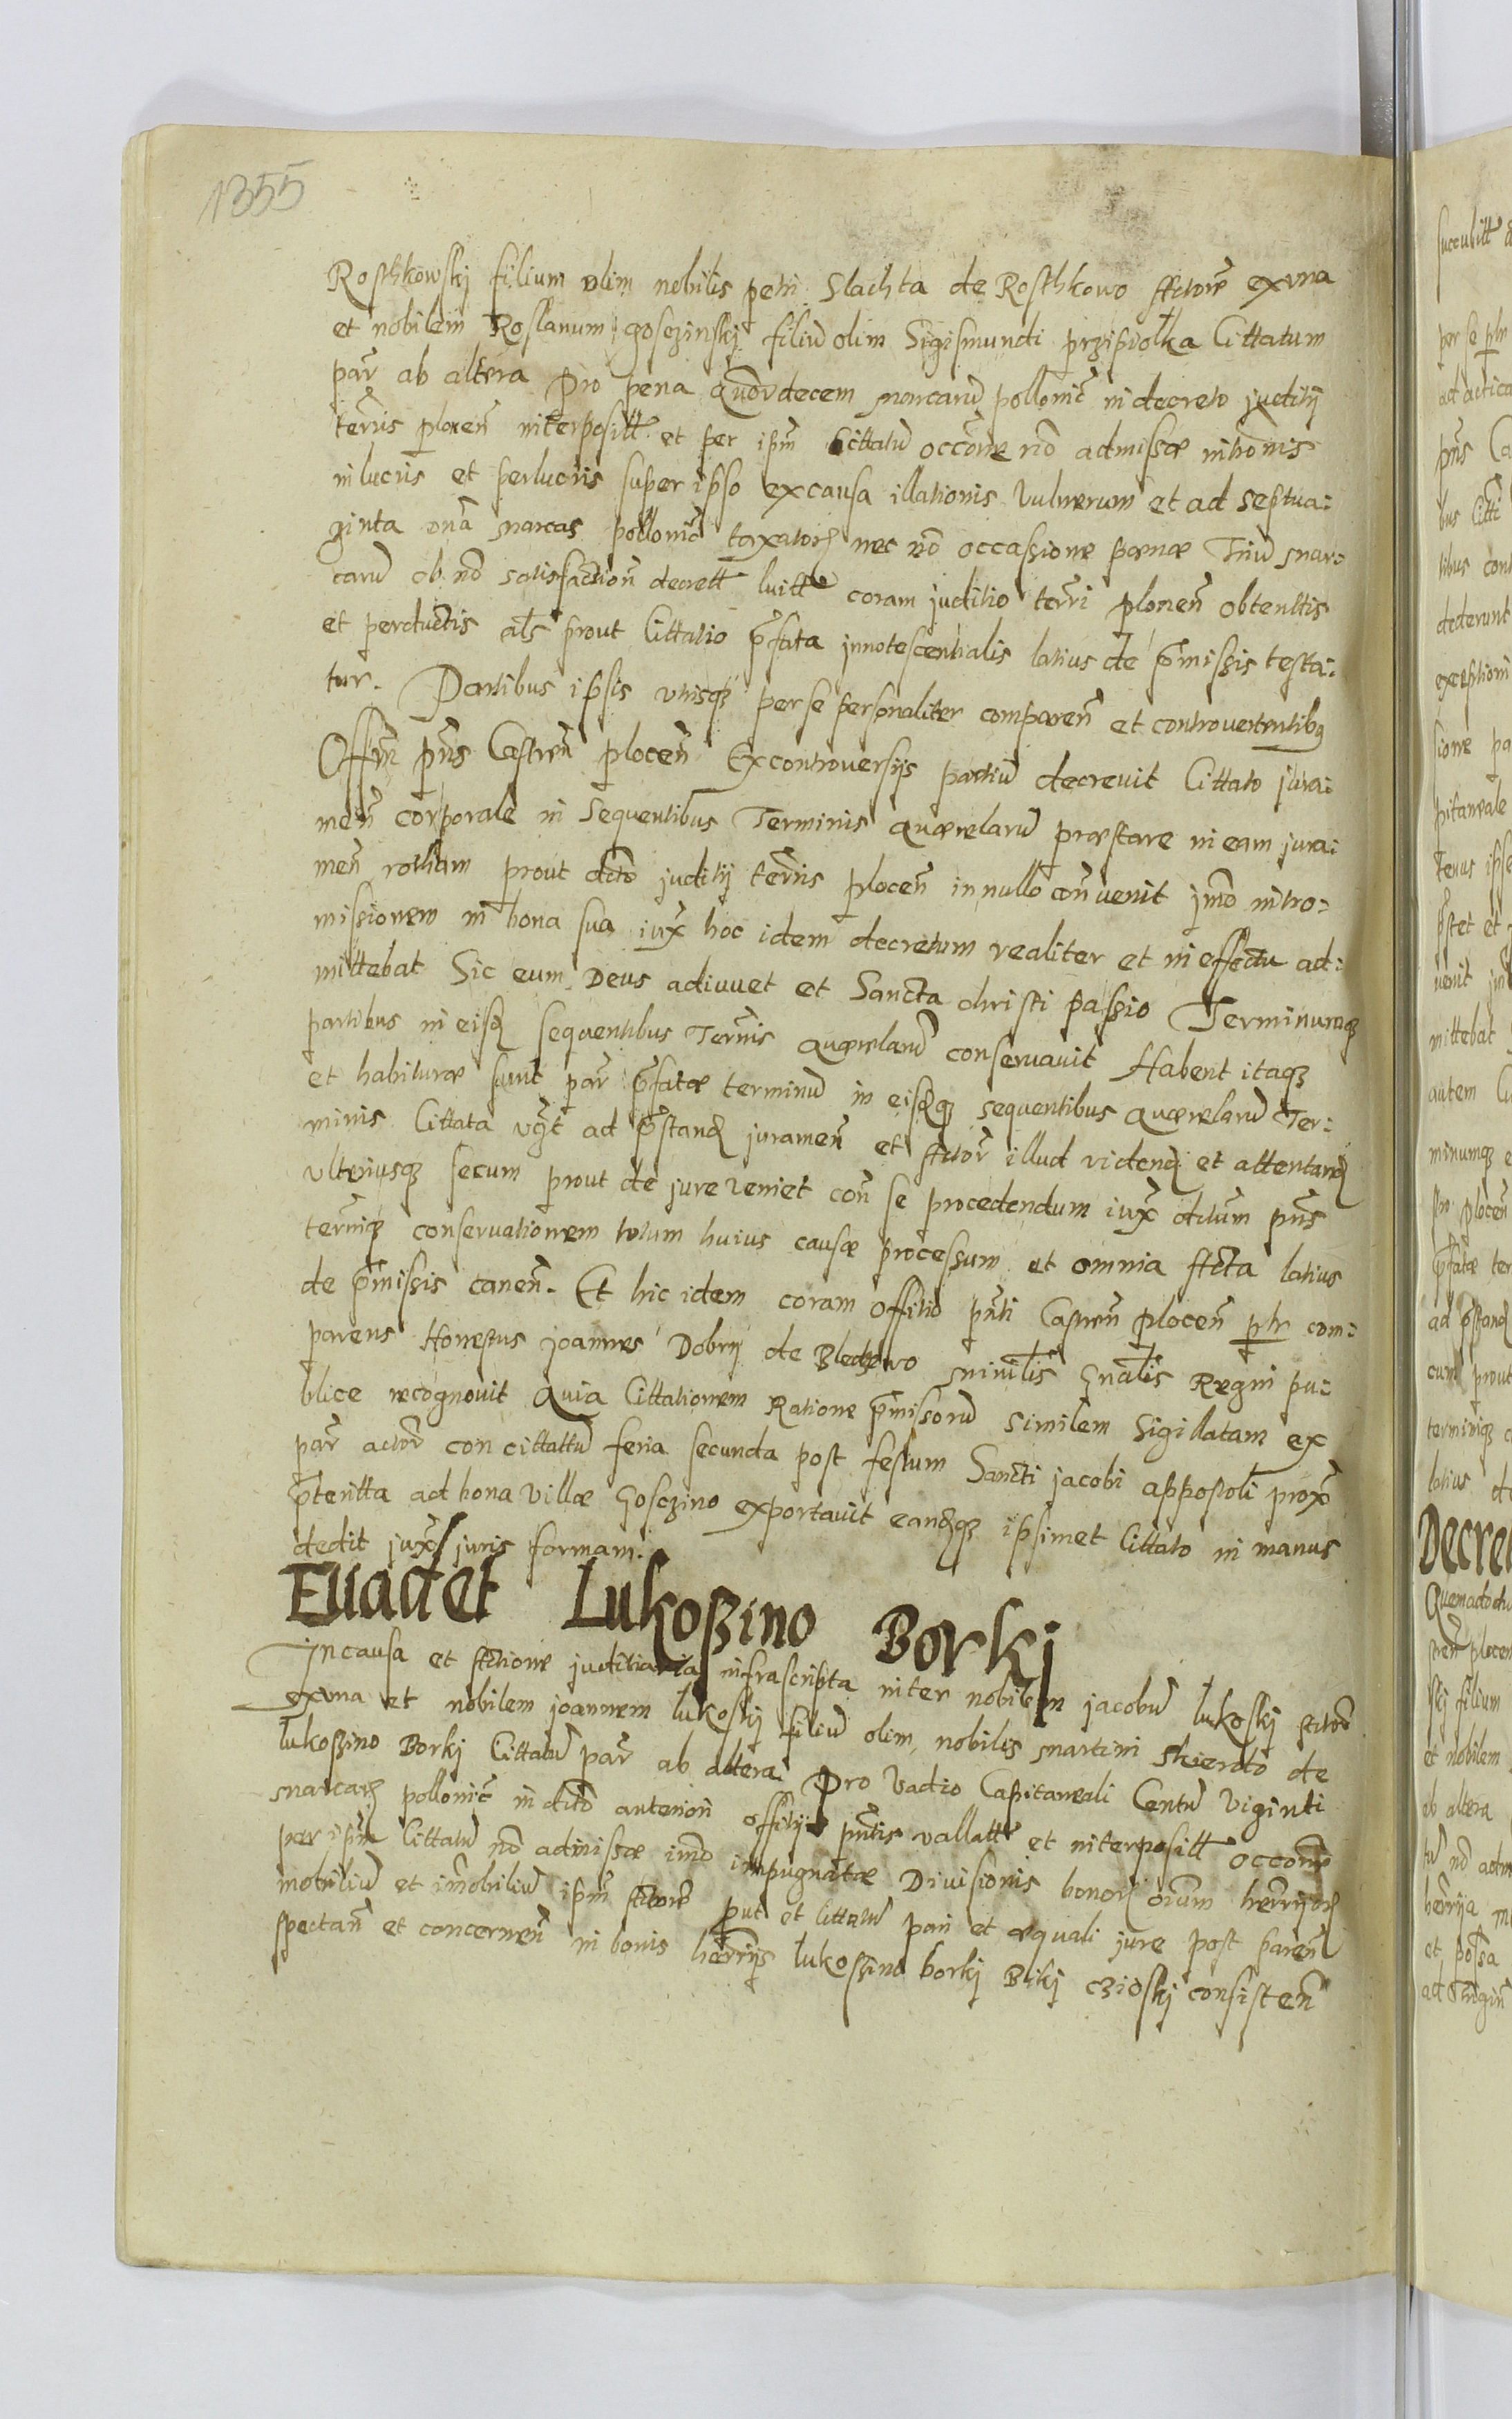 1355
Rosthkowskj filium olim nobilis petri Slachta de Rosthkowo Actorē exvna
et nobilem Roslanum gosczinskj filiū olim Sigismundi przipiolka Cittatum
par̄ ab altera Pro pena Quōrdecem marcarū pollonic̄ in decreto juditij
terr̄is plocen̄ interposittͤ et per ipm̄ Cittatū occōne nō admissæ intromis
in lucris et perlucris super ipso ex causa illationis Vulnerum et ad septua:
ginta vnā marcas pollonic̄ taxatorꝝ nec nō occassione pœnæ Triū mar:
carū ob nō satisfaction̄ decrett luittͤ coram juditio terr̄i plocen̄ obtenttis
et perductis als̄ prout Cittatio p̄fata jnnotescentialis latius de p̄missis testa:
tur. Partibus ipsis vtrisqꝫ per se personaliter comparen̄ et controvertentibꝯ
Offm̄ pn̄s Castren̄ plocen̄ Ex controversijs partiū decrevit Cittato jura:
men̄ corporale in sequentibus Terminis quærelarū præstare in eam jura:
men̄ rotham prout dcto juditij terr̄is plocen̄ in nullo con̄venit jmo intro:
missionem in bona sua iux̄ hoc idem decretum realiter et in effectu ad:
mittebat Sic eum Deus adiuuet et Sancta christi passio Terminumqꝫ
partibus in eisd̄ sequentibus Term̄is quærelarū conservauit Habent itaqꝫ
et habituræ sunt par̄ p̄fatæ terminū in eisdqꝫ sequentibus quærelarū Ter:
minis Cittata vꝫt ad p̄standꝫ juramen̄ et Actor̄ illud videndꝫ et attentandꝫ
vlteriusqꝫ secum prout de jure veniet con̄ se procedendum iux̄ dctum pn̄s
term̄iqꝫ conservationem totum huius causæ processum et omnia Acta latius
de p̄missis canen̄. Et hic idem coram offitio pn̄ti Castren̄ plocen̄ plr com:
parens Honestus joannes Dobry de Bledzewo minilis̄ Gnalis̄ Regni pu:
blice recognouit Quia Cittationem Ratione p̄missorū similem Sigillatam ex
par̄ actor̄ con cittattū feria secunda post festum Sancti jacobi appostoli prox̄
p̄teritta ad bona Villæ Gosczino exportauit eandqꝫ ipsimet Cittato in manus
dedit jux̄ juris formam.
Euadet Lukoszino Borkj
In causa et Actione juditiaria infrascripta inter nobilem jacobū lukoskj Actorē
exvna et nobilem joannem lukoskj filiū olim nobilis martini Skierdo de
lukoszino Borkj Cittatū par̄ ab altera Pro Vadio Capitaneali Centū Viginti
marcarꝝ pollonic̄ in dcto anteriori offitij pn̄tis vallattͤ et interposittͤ occōne
per ipm̄ Cittatū nō admissæ imo impugnatæ Divisionis bonorꝝ oium herrijorꝝ
mobiliū et im̄obiliū ipm̄ Actorē put et Cittatū pari et æquali jure post paren̄
spectan̄ et concernen̄ in bonis hærr̄ijs lukoszino borkj Bikj czioskj consisten̄